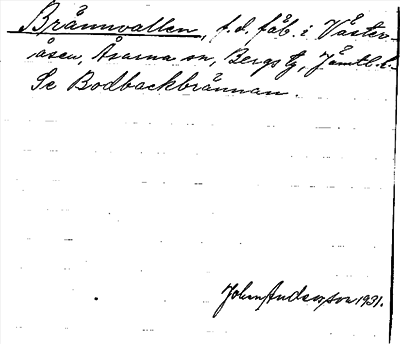 Brännvallen, f. d. fäb. i Väster-
åsen, Åsarna sn, Bergs tg, Jämtl. l.
Se Bodbackbrännan.
John Andersson 1931.